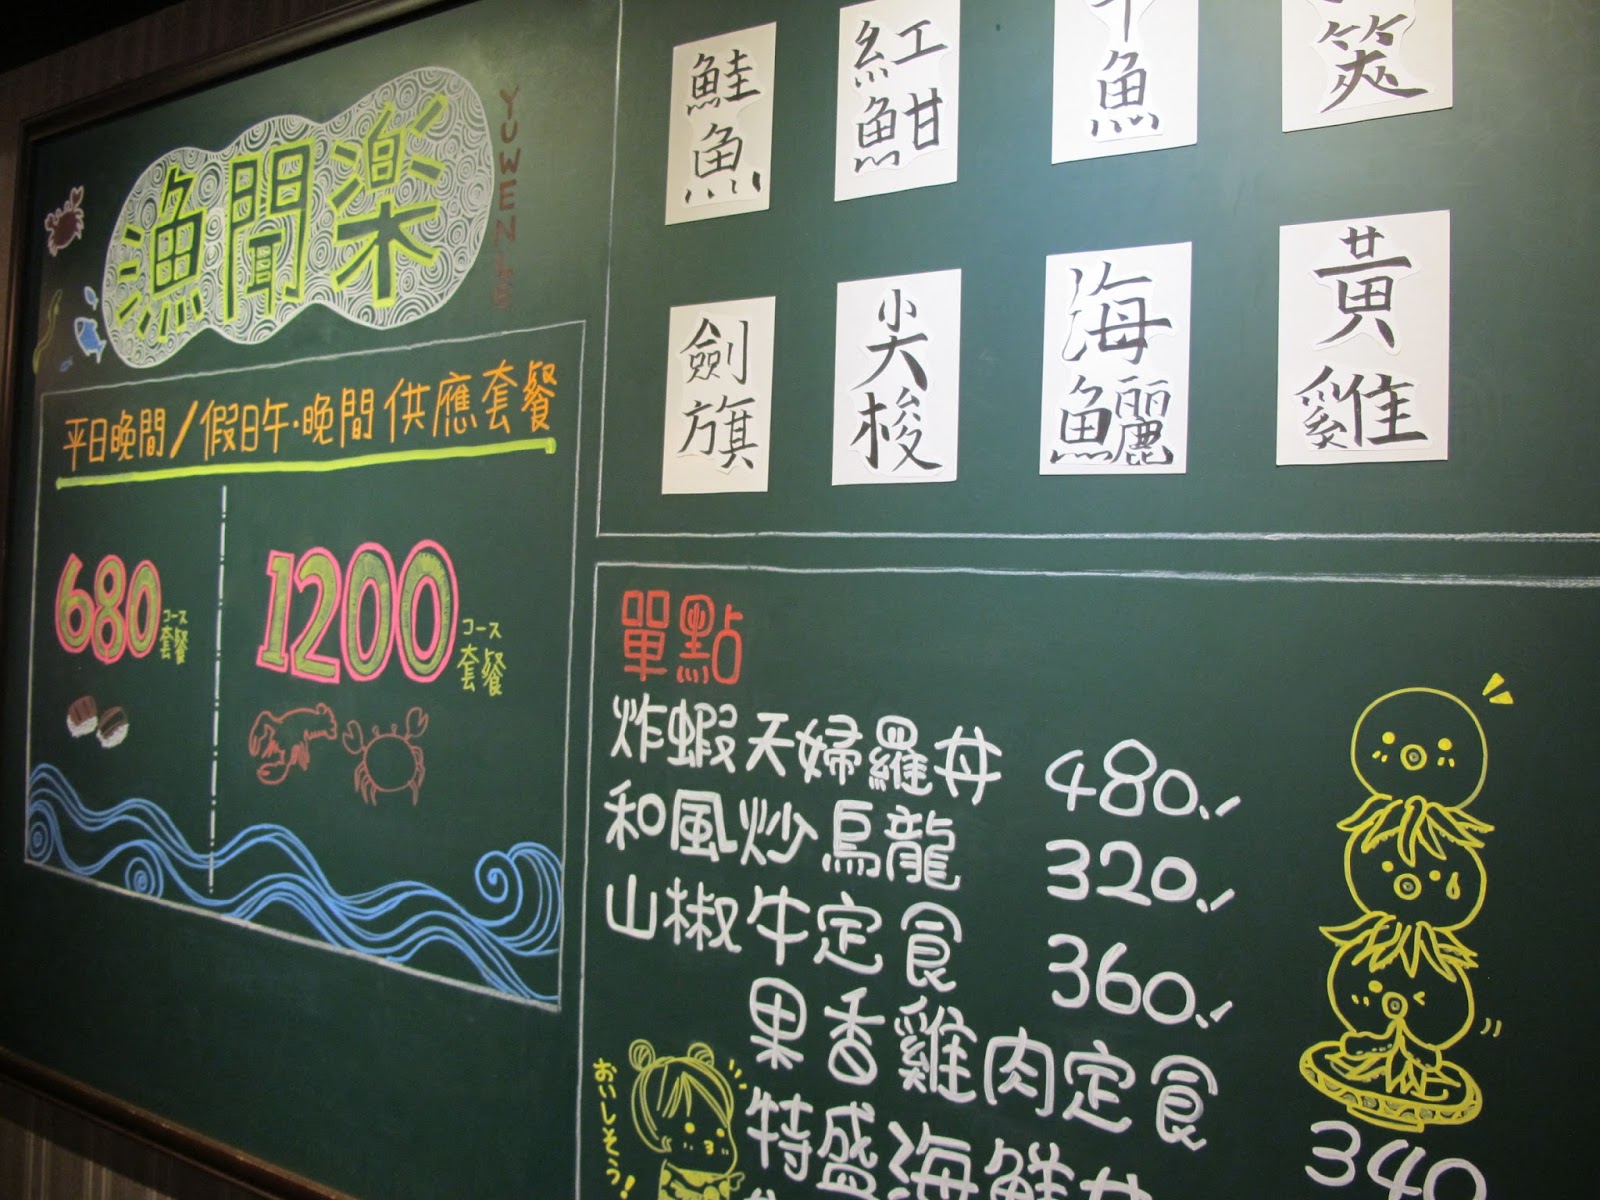 漁聞楽
YUWEN
平日晚間/假日午·晚間供應套餐
680
コース
套餐
1200
コース
套餐
鮭魚
紅魽
魚
筴
劍旗
尖梭
海鱺
黃雞
單點
炸蝦天婦羅丼 480./
和風炒烏龍 320./
山椒牛定食 360./
果香雞肉定食
340
特盛海鮮丼
おいしそう!